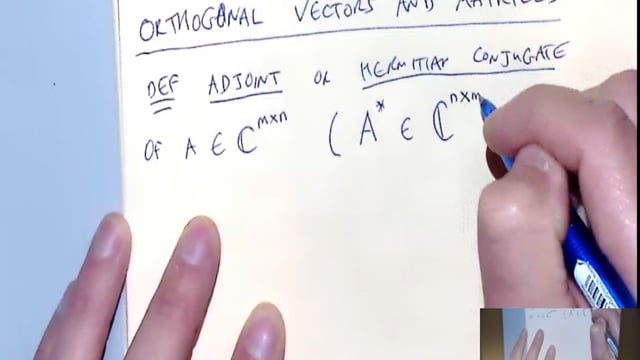 ORTHOGONAL VECTORS AND MATRICES
DEF ADJOINT OR HERMITIAN CONJUGATE
OF A ∈ ℂ^{m×n} ( A* ∈ ℂ^{n×m}